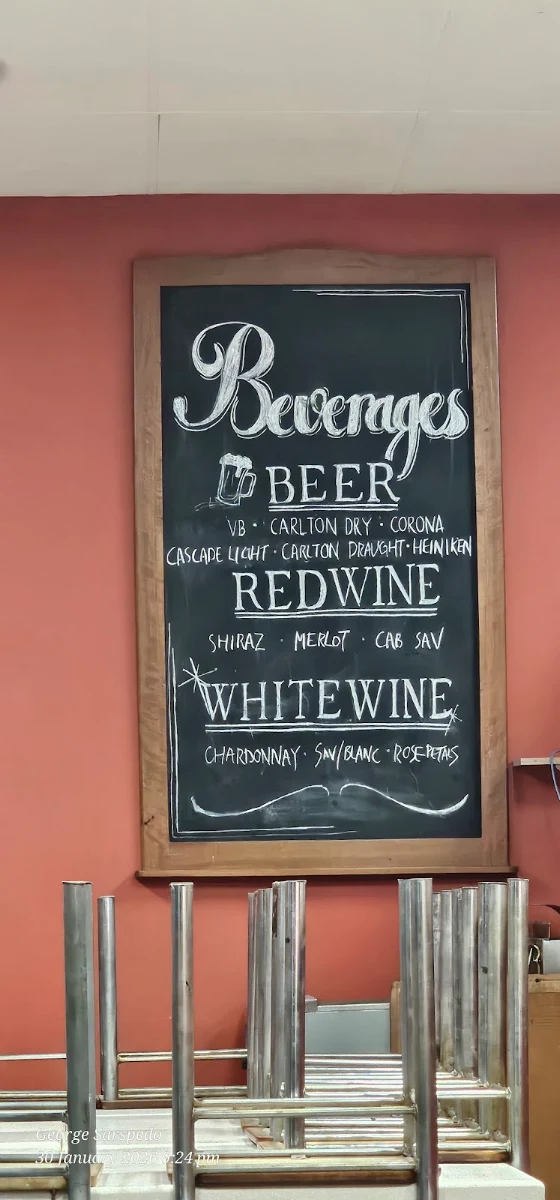 Beverages
BEER
VB · CARLTON DRY · CORONA
CASCADE LIGHT · CARLTON DRAUGHT · HEINIKEN
REDWINE
SHIRAZ · MERLOT · CAB SAV
WHITEWINE
CHARDONNAY · SAV/BLANC · ROSE PETALS
George Sarspedo
30 January 2021 6:24 pm